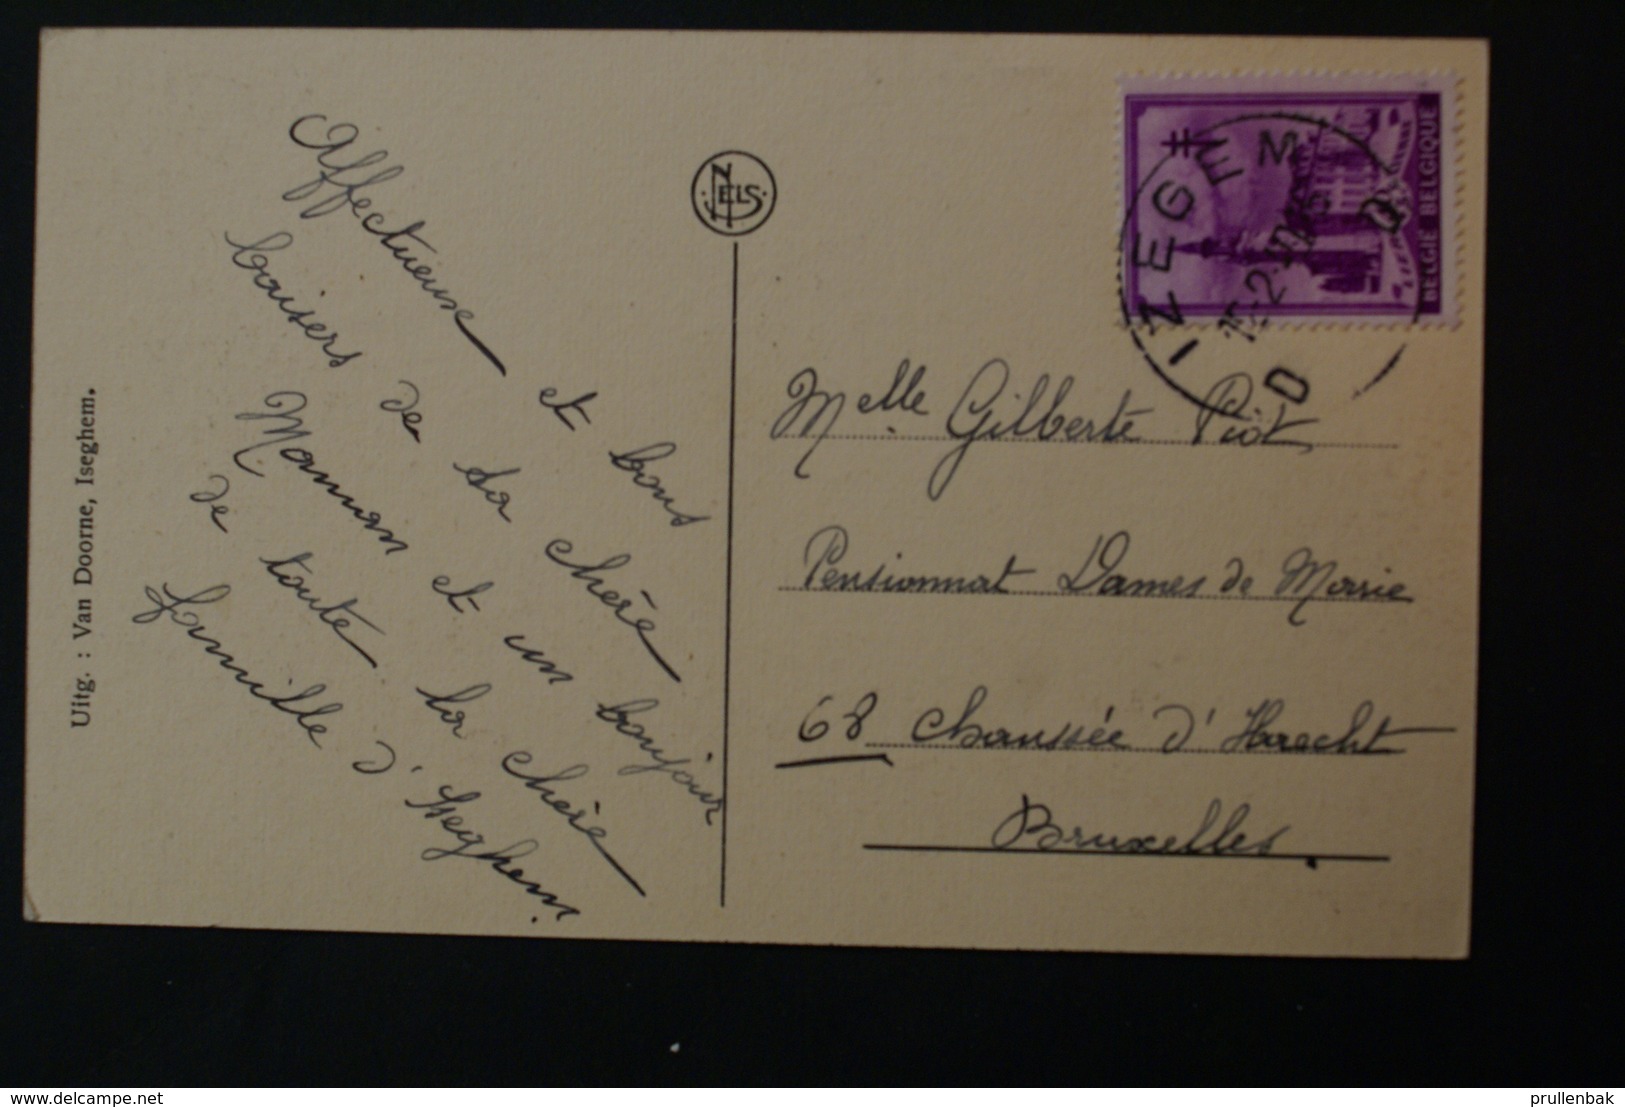 Affectueuse et bons
baisers de sa chère
Maman et un bonjour
de toute la chère
famille d'Iseghem.
Uitg. : Van Doorne, Iseghem.
NELS
BELGIE BELGIQUE
IZEGEM
Melle Gilberte Piot
Pensionnat Dames de Marie
68 chaussée d'Haecht
Bruxelles.
delcampe.net
prullenbak